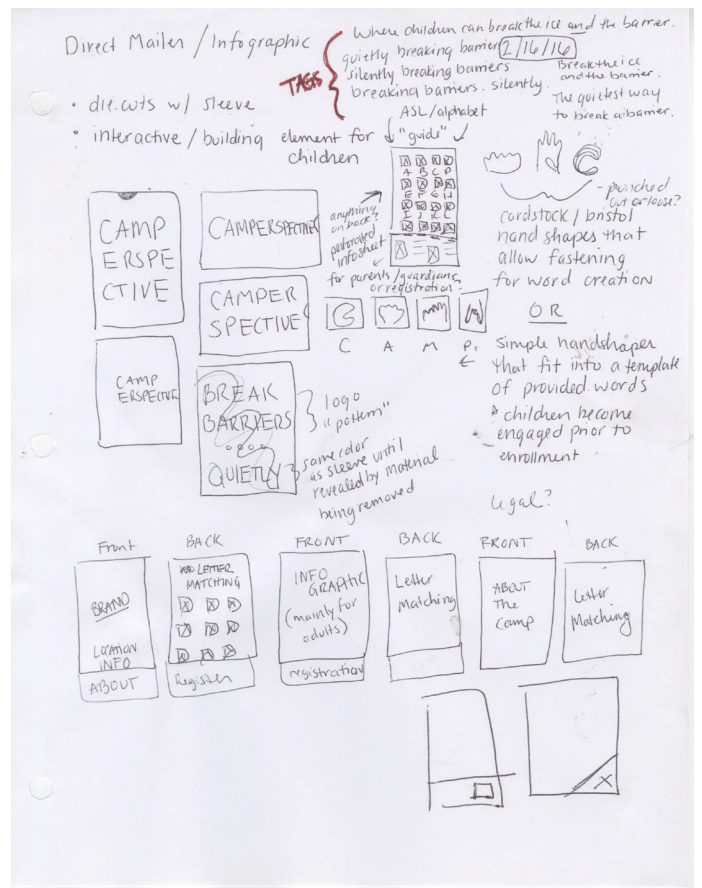 Direct Mailer / Infographic
TAGS
Where children can break the ice and the barrier.
quietly breaking barriers
2/16/16
silently breaking barriers
breaking barriers. silently.
Break the ice
and the barrier.
The quietest way
to break a barrier.
• die.cuts w/ sleeve
• interactive / building element for
children
ASL/alphabet
"guide"
A B C D
E F G H
I J K L
anything
on back?
perforated
info sheet
for parents/guardians
or registration?
- punched
out or loose?
cardstock / bristol
hand shapes that
allow fastening
for word creation
OR
simple handshapes
that fit into a template
of provided words
* children become
engaged prior to
enrollment
CAMP
ERSPE
CTIVE
CAMPERSPECTIVE
CAMPER
SPECTIVE
C A M P.
CAMP
ERSPECTIVE
BREAK
BARRIERS
QUIETLY
logo
"pattern"
same color
as sleeve until
revealed by material
being removed
legal?
Front
BRAND
LOCATION
INFO
ABOUT
BACK
LETTER
MATCHING
Register
FRONT
INFO
GRAPHIC
(mainly for
adults)
registration
BACK
Letter
Matching
FRONT
ABOUT
The
Camp
BACK
Letter
Matching
X